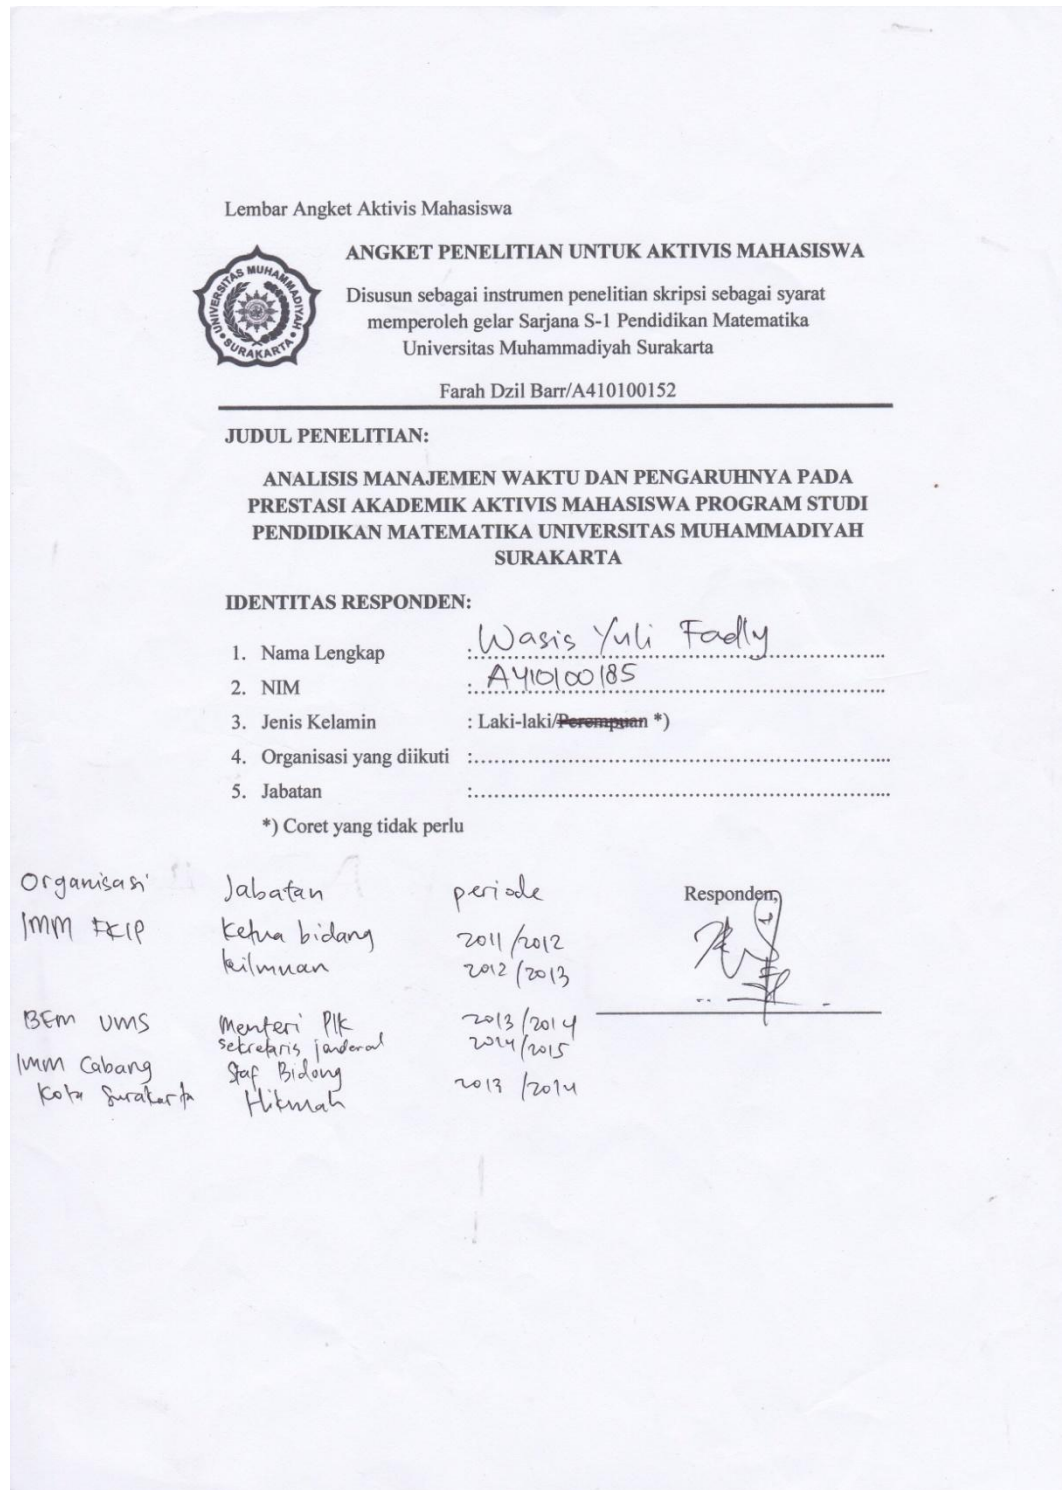 Lembar Angket Aktivis Mahasiswa
UNIVERSITAS MUHAMMADIYAH SURAKARTA
ANGKET PENELITIAN UNTUK AKTIVIS MAHASISWA
Disusun sebagai instrumen penelitian skripsi sebagai syarat
memperoleh gelar Sarjana S-1 Pendidikan Matematika
Universitas Muhammadiyah Surakarta
Farah Dzil Barr/A410100152
JUDUL PENELITIAN:
ANALISIS MANAJEMEN WAKTU DAN PENGARUHNYA PADA
PRESTASI AKADEMIK AKTIVIS MAHASISWA PROGRAM STUDI
PENDIDIKAN MATEMATIKA UNIVERSITAS MUHAMMADIYAH
SURAKARTA
IDENTITAS RESPONDEN:
1. Nama Lengkap : Wasis Yuli Fadly
2. NIM : A410100185
3. Jenis Kelamin : Laki-laki/Perempuan *)
4. Organisasi yang diikuti :
5. Jabatan :
*) Coret yang tidak perlu
Organisasi Jabatan periode Responden,
IMM FKIP Ketua bidang 2011/2012
keilmuan 2012/2013
BEM UMS Menteri PIK 2013/2014
sekretaris jenderal 2014/2015
IMM Cabang Staf Bidang 2013/2014
Kota Surakarta Hikmah